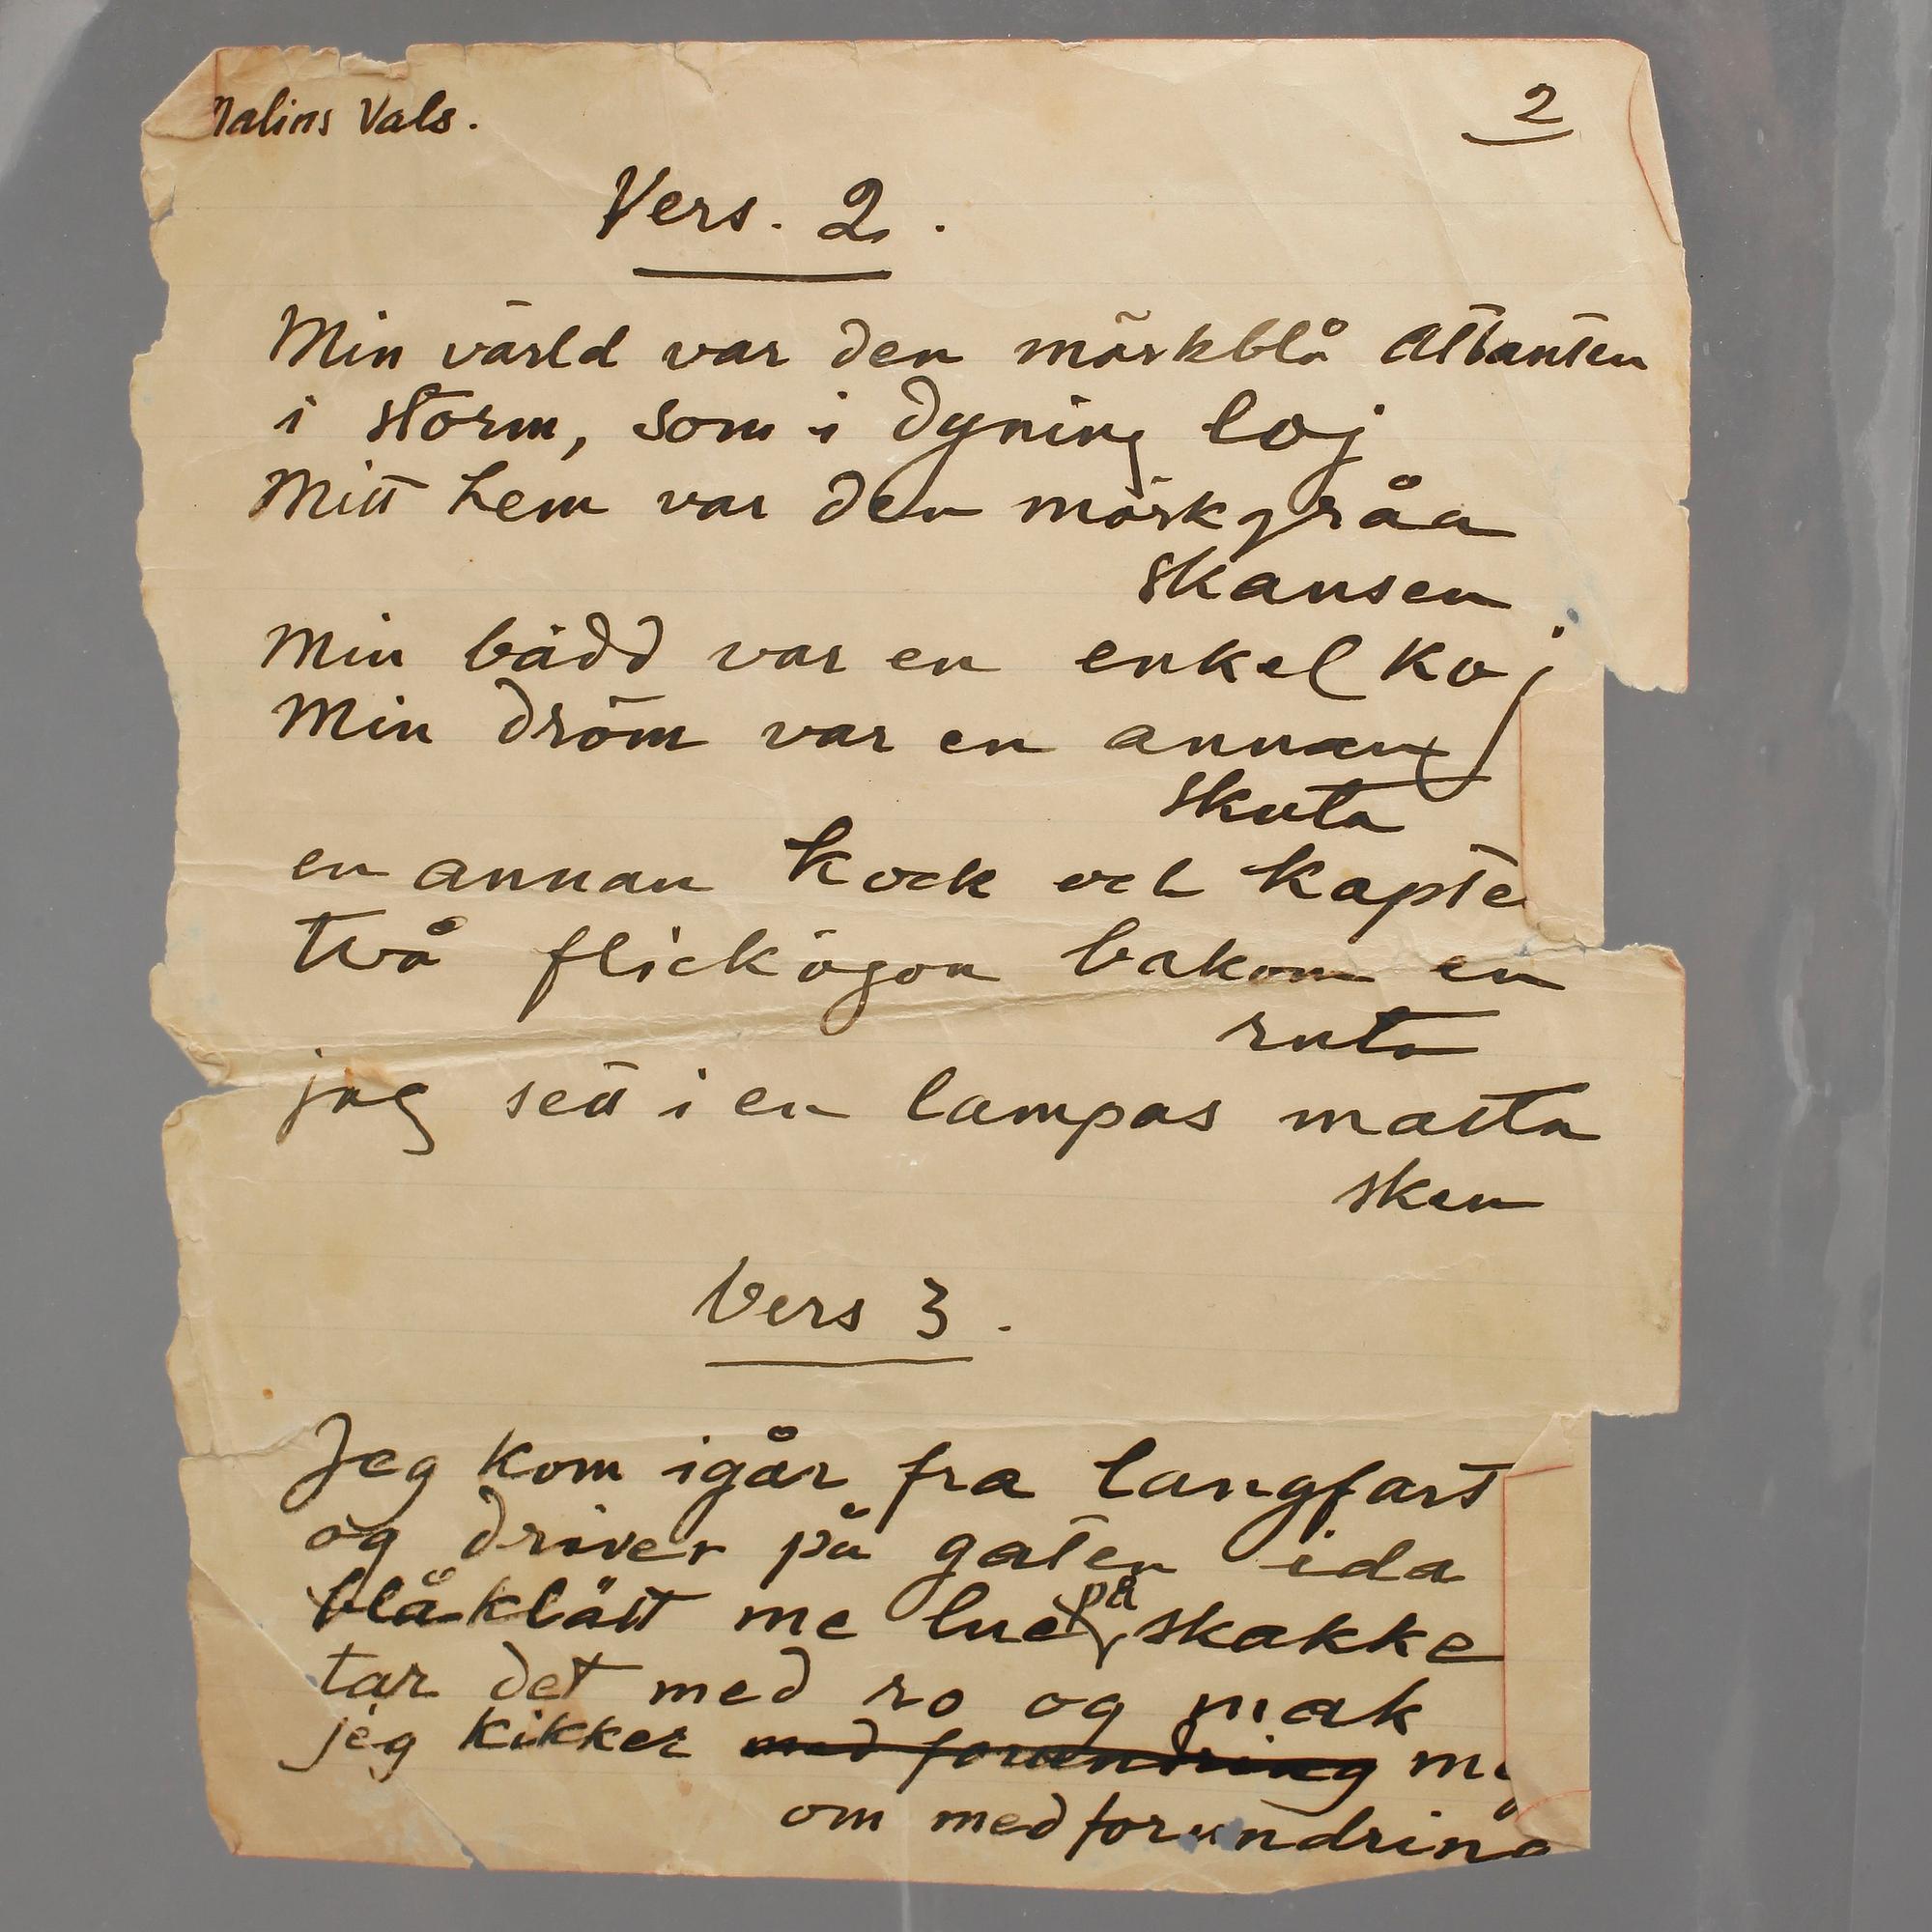 Malins Vals.
2
Vers. 2.
Min värld var den mörkblå Atlanten
i storm, som i dyning loj
Mitt hem var den mörkgråa
skansen
Min bädd var en enkel koj
Min dröm var en annan
skuta
en annan kock och kapte
två flickögon bakom en
ruta
jag sett i en lampas matta
sken
Vers 3.
Jeg kom igår fra langfart
og driver på gaten ida
blåklätt me lue på skakke
tar det med ro og mak
jeg kikker med forundring meg
om med forundring